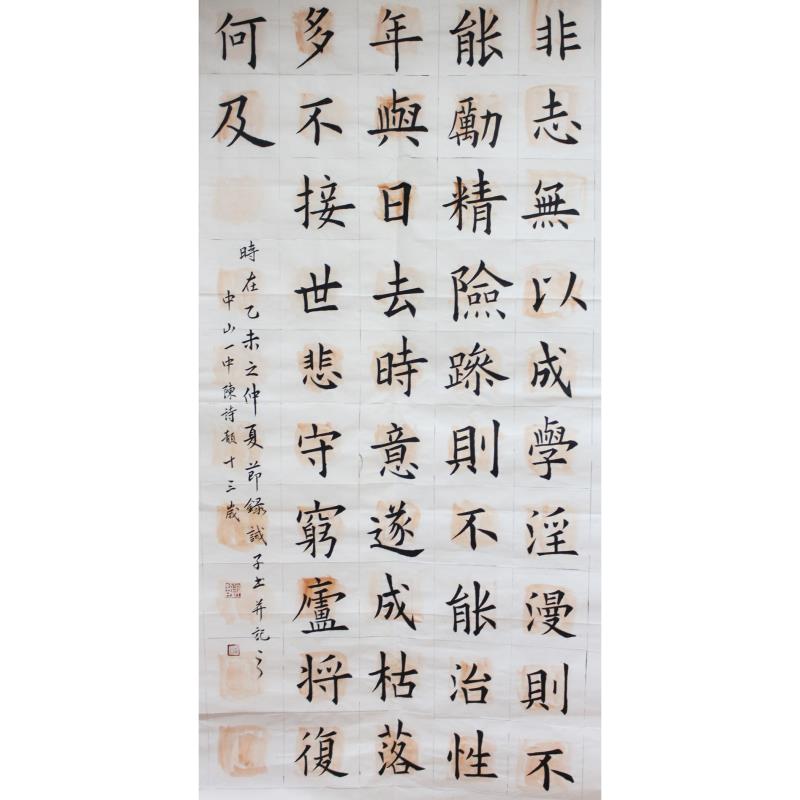 非志無以成學淫漫則不
能勵精險躁則不能治性
年與日去時意遂成枯落
多不接世悲守窮廬將復
何及
時在乙未之仲夏節録誡子書并記之
中山一中陳詩韻十三歲